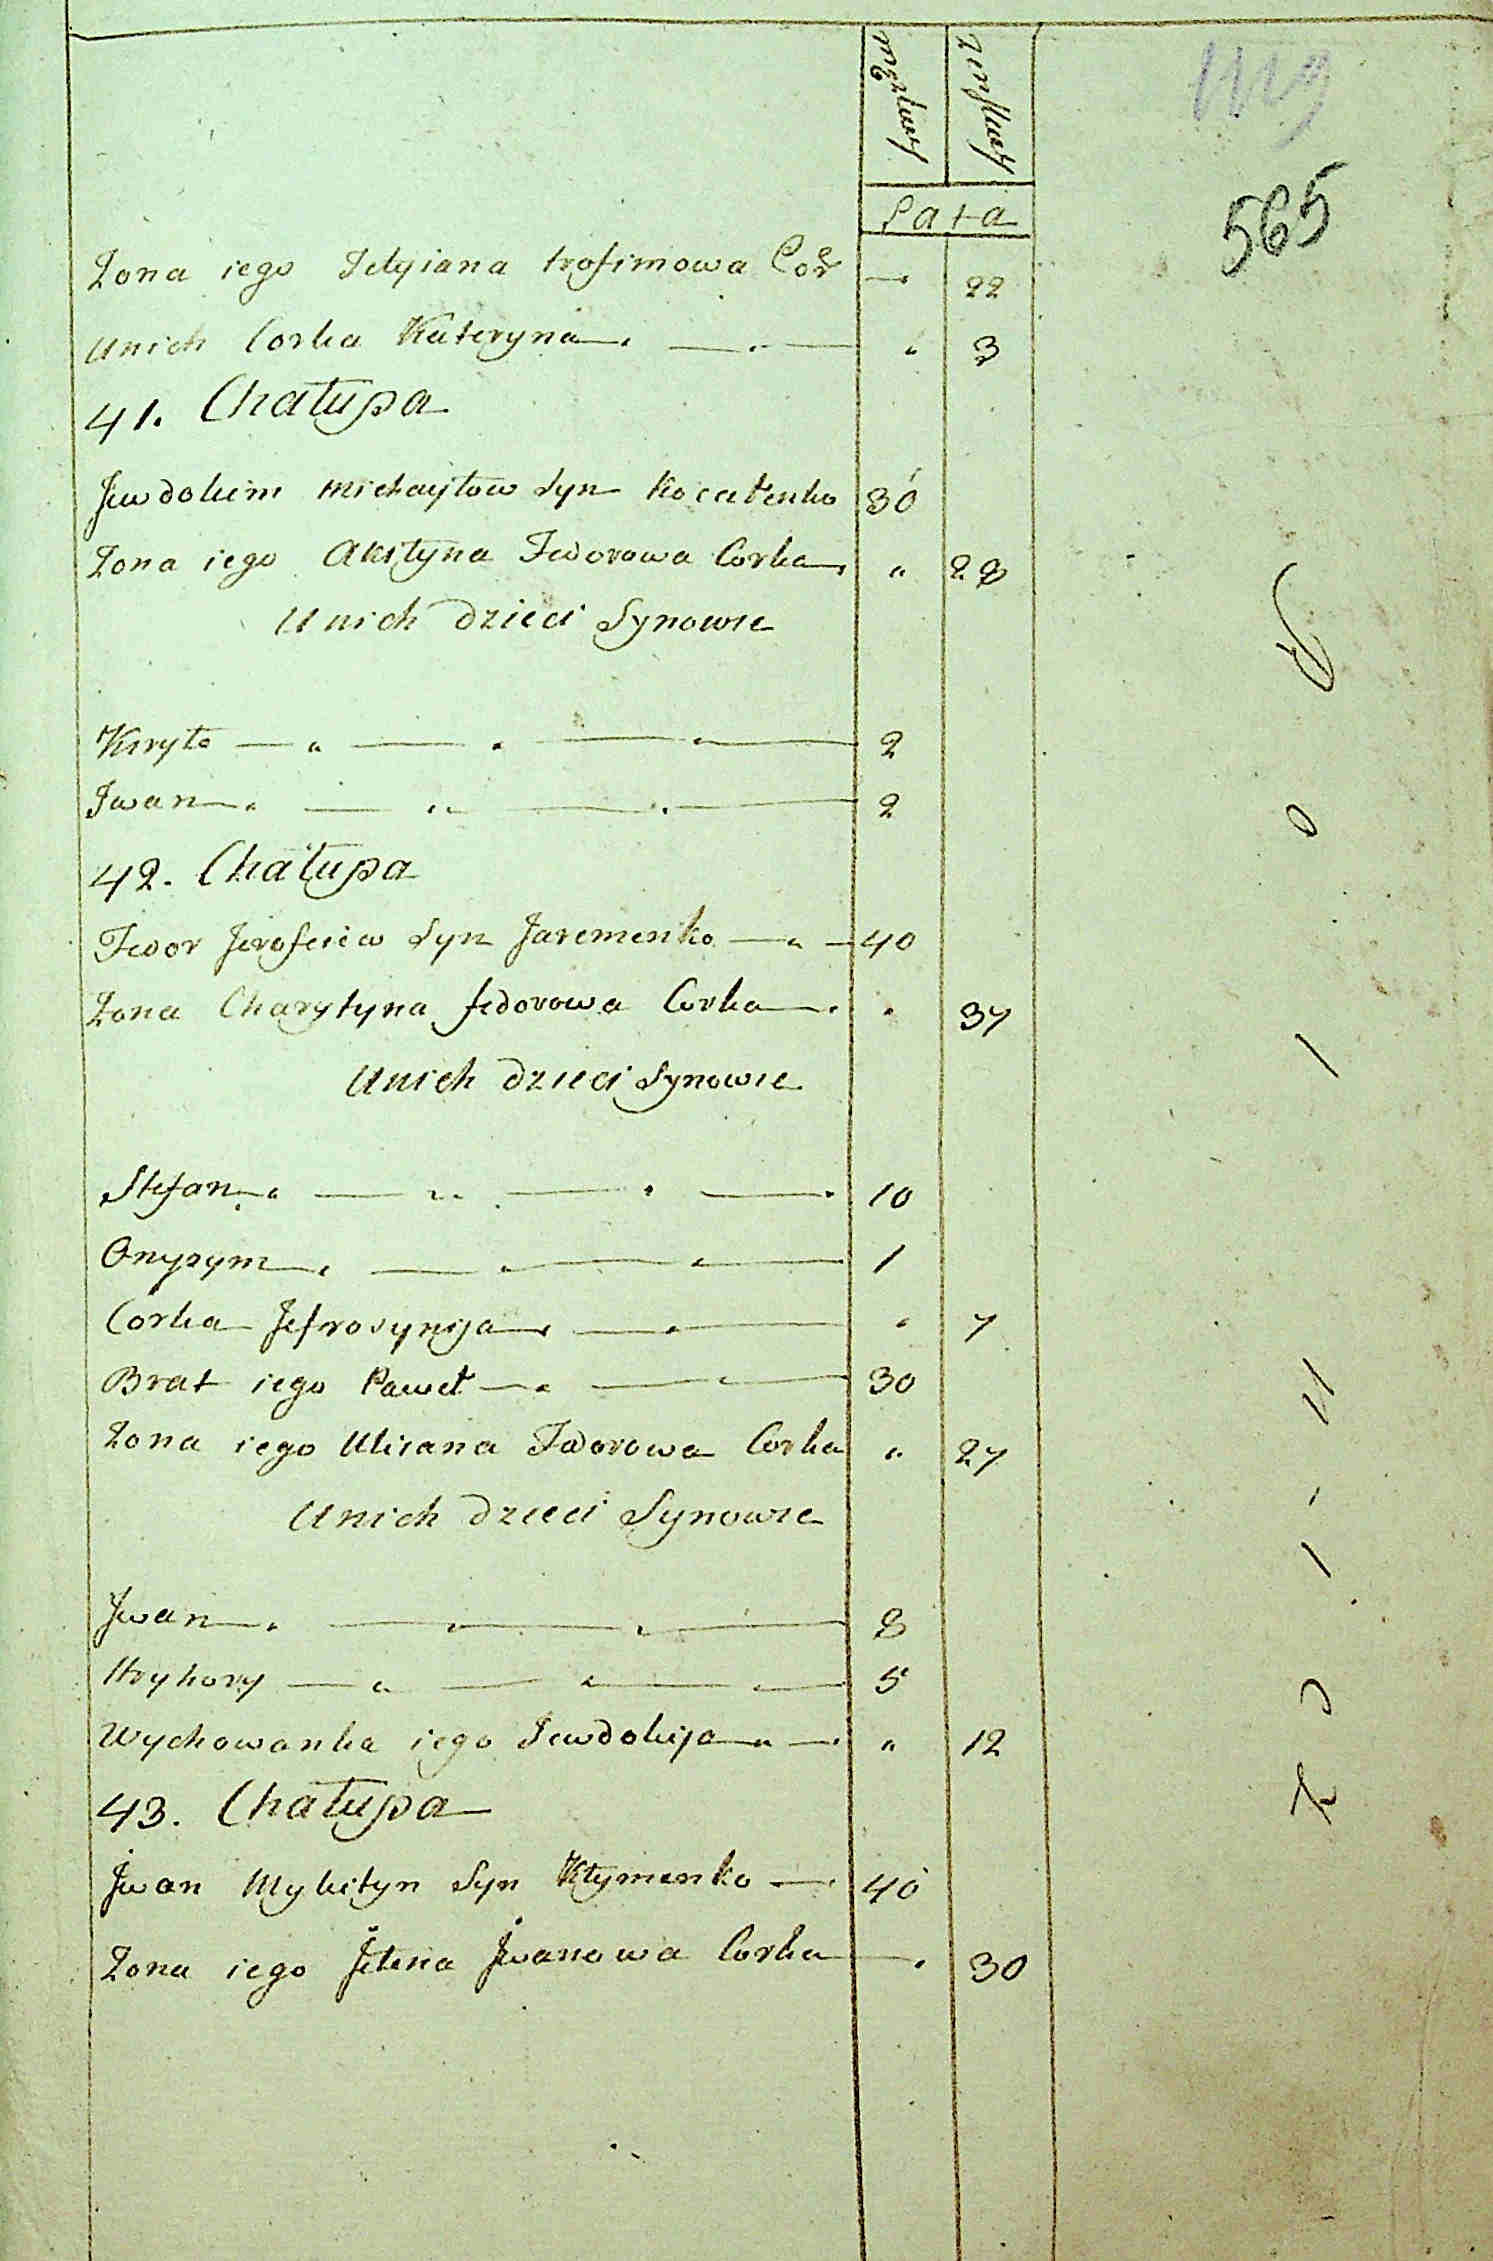 Męzkiej
Zenskiej
565
Lata
Zona iego Tetyiana trofimowa Cor — 22
Unich Corka Kateryna — — " 3
41. Chałupa
Jewdokim Michayłow Syn Kocałenko 30
Zona iego Akstyna Fedorowa Corka " 28
Unich dzieci Synowie
Kiryło — " — " — " — 2
Iwan — " — " — " — 2
42. Chałupa
Fedor Jerofeiew Syn Jaremenko — " — 40
Zona Charytyna fedorowa Corka — " 37
Unich dzieci Synowie
Stefan — " — " — " — 10
Onysym — " — " — " — 1
Corka Jefrosynija — " — " 7
Brat iego Paweł — " — " — 30
Zona iego Uliana Fedorowa Corka " 27
Unich dzieci Synowie
Iwan — " — " — " — 8
Hryhory — " — " — " — 5
Wychowanka iego Jewdokija — " — " 12
43. Chałupa
Iwan Mykityn Syn Kłymenko — 40
Zona iego Jełena Iwanowa Corka — 30